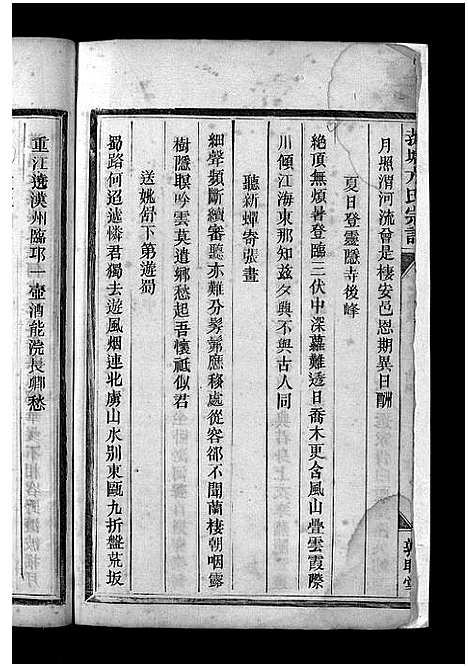 月照渭河流曾是棲安邑恩期異日酬
夏日登靈隱寺後峰
絶頂無煩暑登臨三伏中深蘿難透日喬木更含風山疊雲霞際
川傾江海東那知兹夕興不與古人同
聽新蟬寄張晝
細聲頻斷續審聽亦難分髣髴應移處從容卻不聞蘭棲朝咽露
樹隱暝吟雲莫遣鄉愁起吾懷祗似君
送姚舒下第遊蜀
蜀路何迢遞憐君獨去遊風烟連北虜山水別東甌九折盤荒坂
重江遶漢州臨邛一壺酒能澆長卿愁